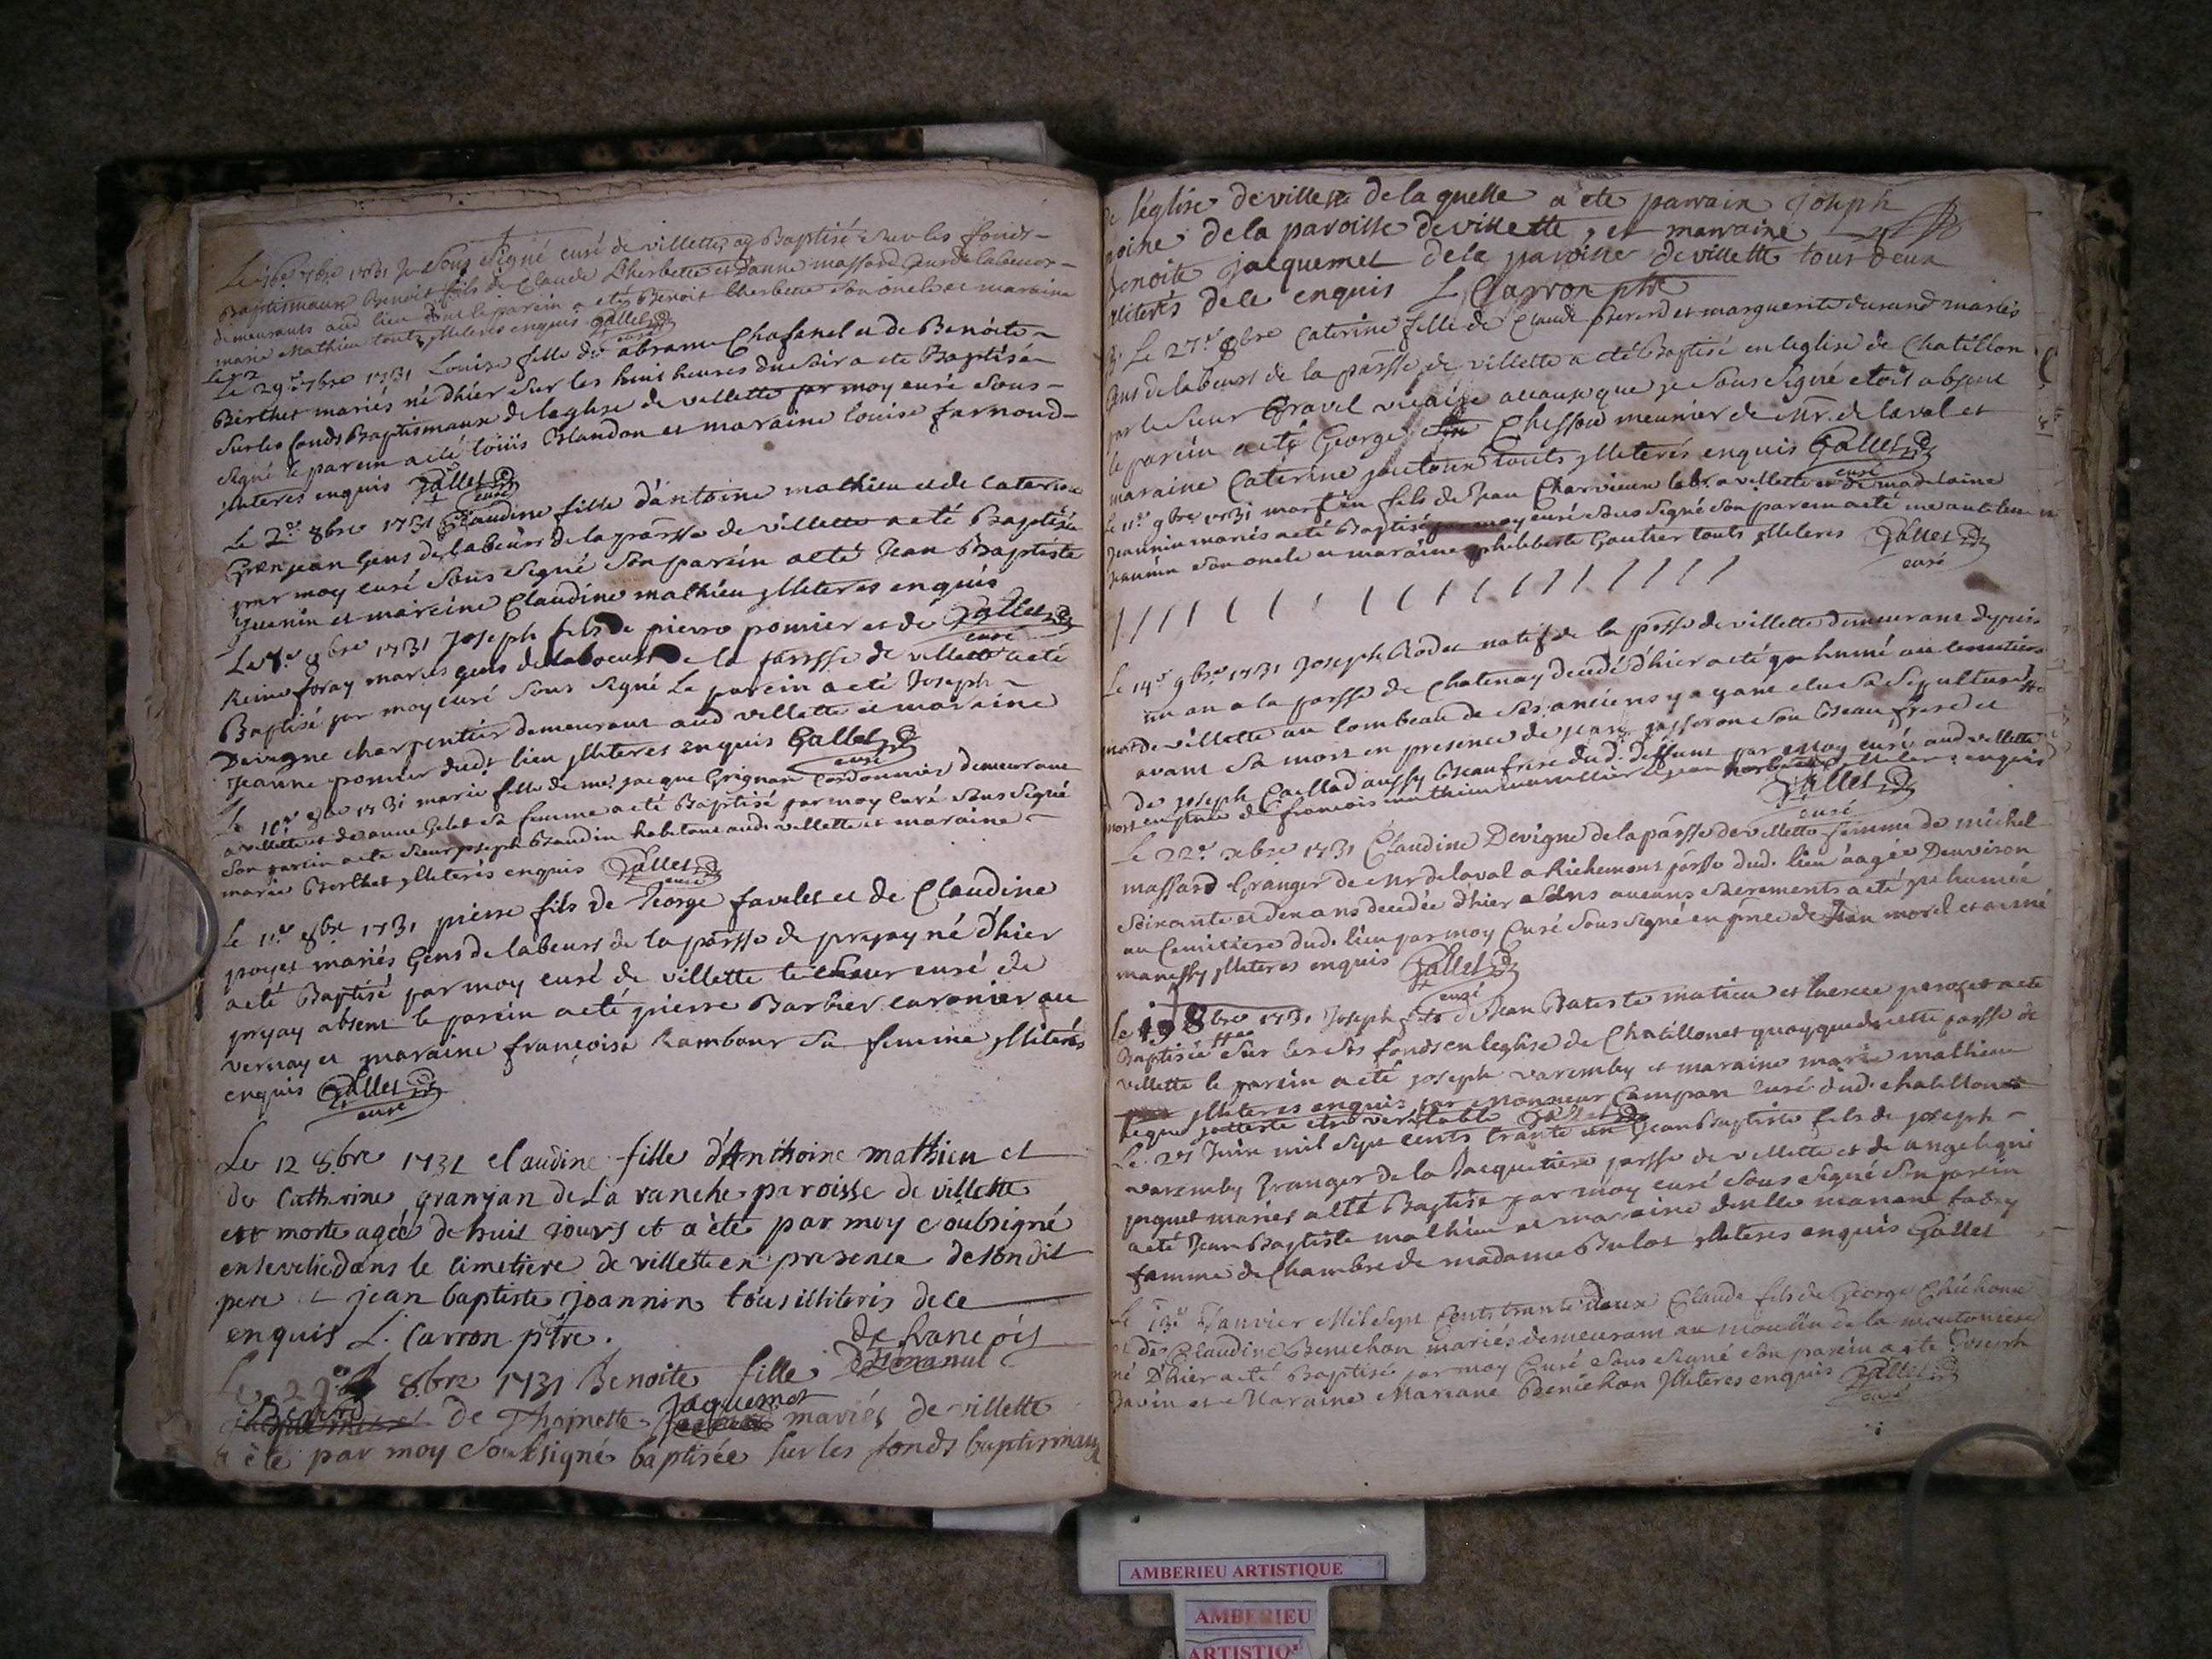 Le 16e 7bre 1731 Je Sous Signé curé de villette ay Baptisé sur les fonds
Baptismaux Benoit fils de Claude Cherbette et d'anne massard gens de labeur
demeurants aud lieu dont le parein a eté Benoit Cherbette son oncle et maraine
marie Mathieu touts illiteres enquis Gallet
curé
Le 29e 7bre 1731 Louise fille de abram Chafanel et de Benoite
Berthet mariés né dhier sur les huit heures du soir a eté Baptisée
sur les fonds Baptismaux de leglise de villette par moy curé sous
signé le parein a eté loüis Blandon et maraine louise farnoud
illiteres enquis Gallet
curé
Le 2e 8bre 1731 Claudine fille d'antoine mathieu et de Caterine
Granjean Gens de labeur de la parsse de villette a eté Baptisée
par moy curé sous signé son parein a eté Jean Baptiste
Juenin et mareine Claudine mathieu illiteres enquis
Gallet
curé
Le 8bre 1731 Joseph fils de pierre pomier et de
Reine foray mariés gens de labeur de la parsse de villette a eté
Baptisé par moy curé sous signé Le parein a eté Joseph
Devigne charpentier demeurant aud villette et maraine
Jeanne pomier dudt lieu illiteres enquis Gallet
curé
Le 8bre 1731 marie fille de me. jacque Grignan Cordonnier demeurant
a villette et de anne Gelet sa femme a eté Baptisé par moy Curé sous signé
son parein a eté sieur joseph Baudin habitant aud. villette et maraine
marie Berthet illiterés enquis Gallet
curé
Le 11e 8bre 1731 pierre fils de George favelet et de Claudine
poyet mariés Gens de labeurs de la parsse de priay né d'hier
a eté Baptisé par moy curé de villette le sieur curé de
priay absent le parein a eté pierre Barbier caronier au
vernay et maraine françoise Rambour sa femme illiterés
enquis Gallet
curé
Le 12 8.bre 1731 claudine fille d'Anthoine mathieu et
de Catherine granjan de La ranche paroisse de villette
est morte agée de huit jours et a èté par moy soubsigné
ensevelie dans le cimetiere de villette en presence de son dit
pere et jean baptiste joannin tous illiteris de ce
enquis L. Carron ptre.
de francois
Le 8.bre 1731 Benoite fille
Berard de Thoinette Jaquemet mariés de villette
a èté par moy soubsigné baptisée sur les fonds baptismaux
de l'église de villette de laquelle a eté parrain joseph
de la paroisse de villette, et marraine
benoite jacquemet de la paroisse de villette tous deux
illiterés de ce enquis L Carron ptre
Le 27e 8bre Caterine fille de Claude Berard et marguerite durand mariés
gens de labeurs de la parsse de villette a eté Baptisé en leglise de Chatillon
par le sieur Gravel vicaire a cause que je sous signé etoit absent
le parein a eté George Chessou meunier de Mr. de laval et
maraine Caterine touts illiterés enquis Gallet
curé
Le 11e 9bre 1731 martin fils de Jean Charvieux labr. a villette et de madelaine
Jeannin mariés a eté Baptisé par moy curé sous signé son parein a eté
Jeannin son oncle et maraine philiberte Gautier touts illiteres Gallet
curé
Le 14e 9bre 1731 Joseph Rodet natif de la parsse de villette demeurant depuis
un an a la parsse de Chatenay decedé d'hier a eté inhumé au cemetiere
de villette au tombeau de ses anciens y ayant elu sa sepulture
avant sa mort en presence de jean gasseron son beau frere et
de joseph Caillad aussy beau frere dud. deffunt par moy curé aud villette
Gallet
curé
Le 22e xbre 1731 Claudine Devigne de la parsse de villette femme de michel
massard Granger de Mr de laval a Richemont parsse dud. lieu aagée denviron
soixante et dix ans decedée dhier sans aucuns sacrements a eté inhumée
au Cemitiere dud. lieu par moy Curé sous signé en pnce de Jean morel et aimé
manessy illiteres enquis Gallet
curé
le 8bre 1731 Joseph fils de Jean Batiste matieu et a eté
Baptisée sur les sts fonds en leglise de Chatillonet quoyque de cette parsse de
villette le parein a eté joseph varemby et maraine marie mathieu
illiteres enquis par Monsieur Campan curé dud. chatillonet
ceque jatteste etre veritable Gallet
Le 27 Juin mil sept cents trante un Jean Baptiste fils de joseph
varemby Granger de la Jacquetiere parsse de villette et de angelique
jnquet mariés a eté Baptisé par moy curé sous signé son parein
a eté Jean Baptiste mathieu et maraine delle mariane fabry
famme de Chambre de madame Bulot illiteres enquis Gallet
Le 13e Janvier Mil sept Cents trante deux Claude fils de George Chichoux
et de Claudine Benichon mariés demeurant au moulin de la moutoniere
né Dhier a eté Baptisé par moy Curé sous signé son parein a eté Joseph
Davin et Maraine Mariane Benichon illiteres enquis Gallet
curé
AMBERIEU ARTISTIQUE
AMBERIEU
ARTISTIQ